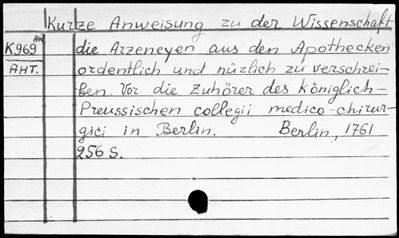 Kurze Anweisung zu der Wissenschaft
AN
K969
AHT.
die Arzeneyen aus den Apothecken
ordentlich und nüzlich zu verschrei-
ben. Vor die Zuhörer des Königlich-
Preussischen collegii medico-chirur-
gici in Berlin. Berlin, 1761
256 S.